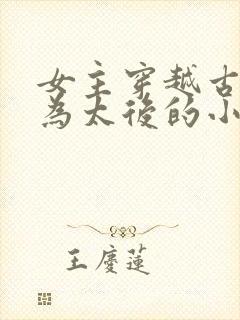 女主穿越古
為太後的小
王慶蓮